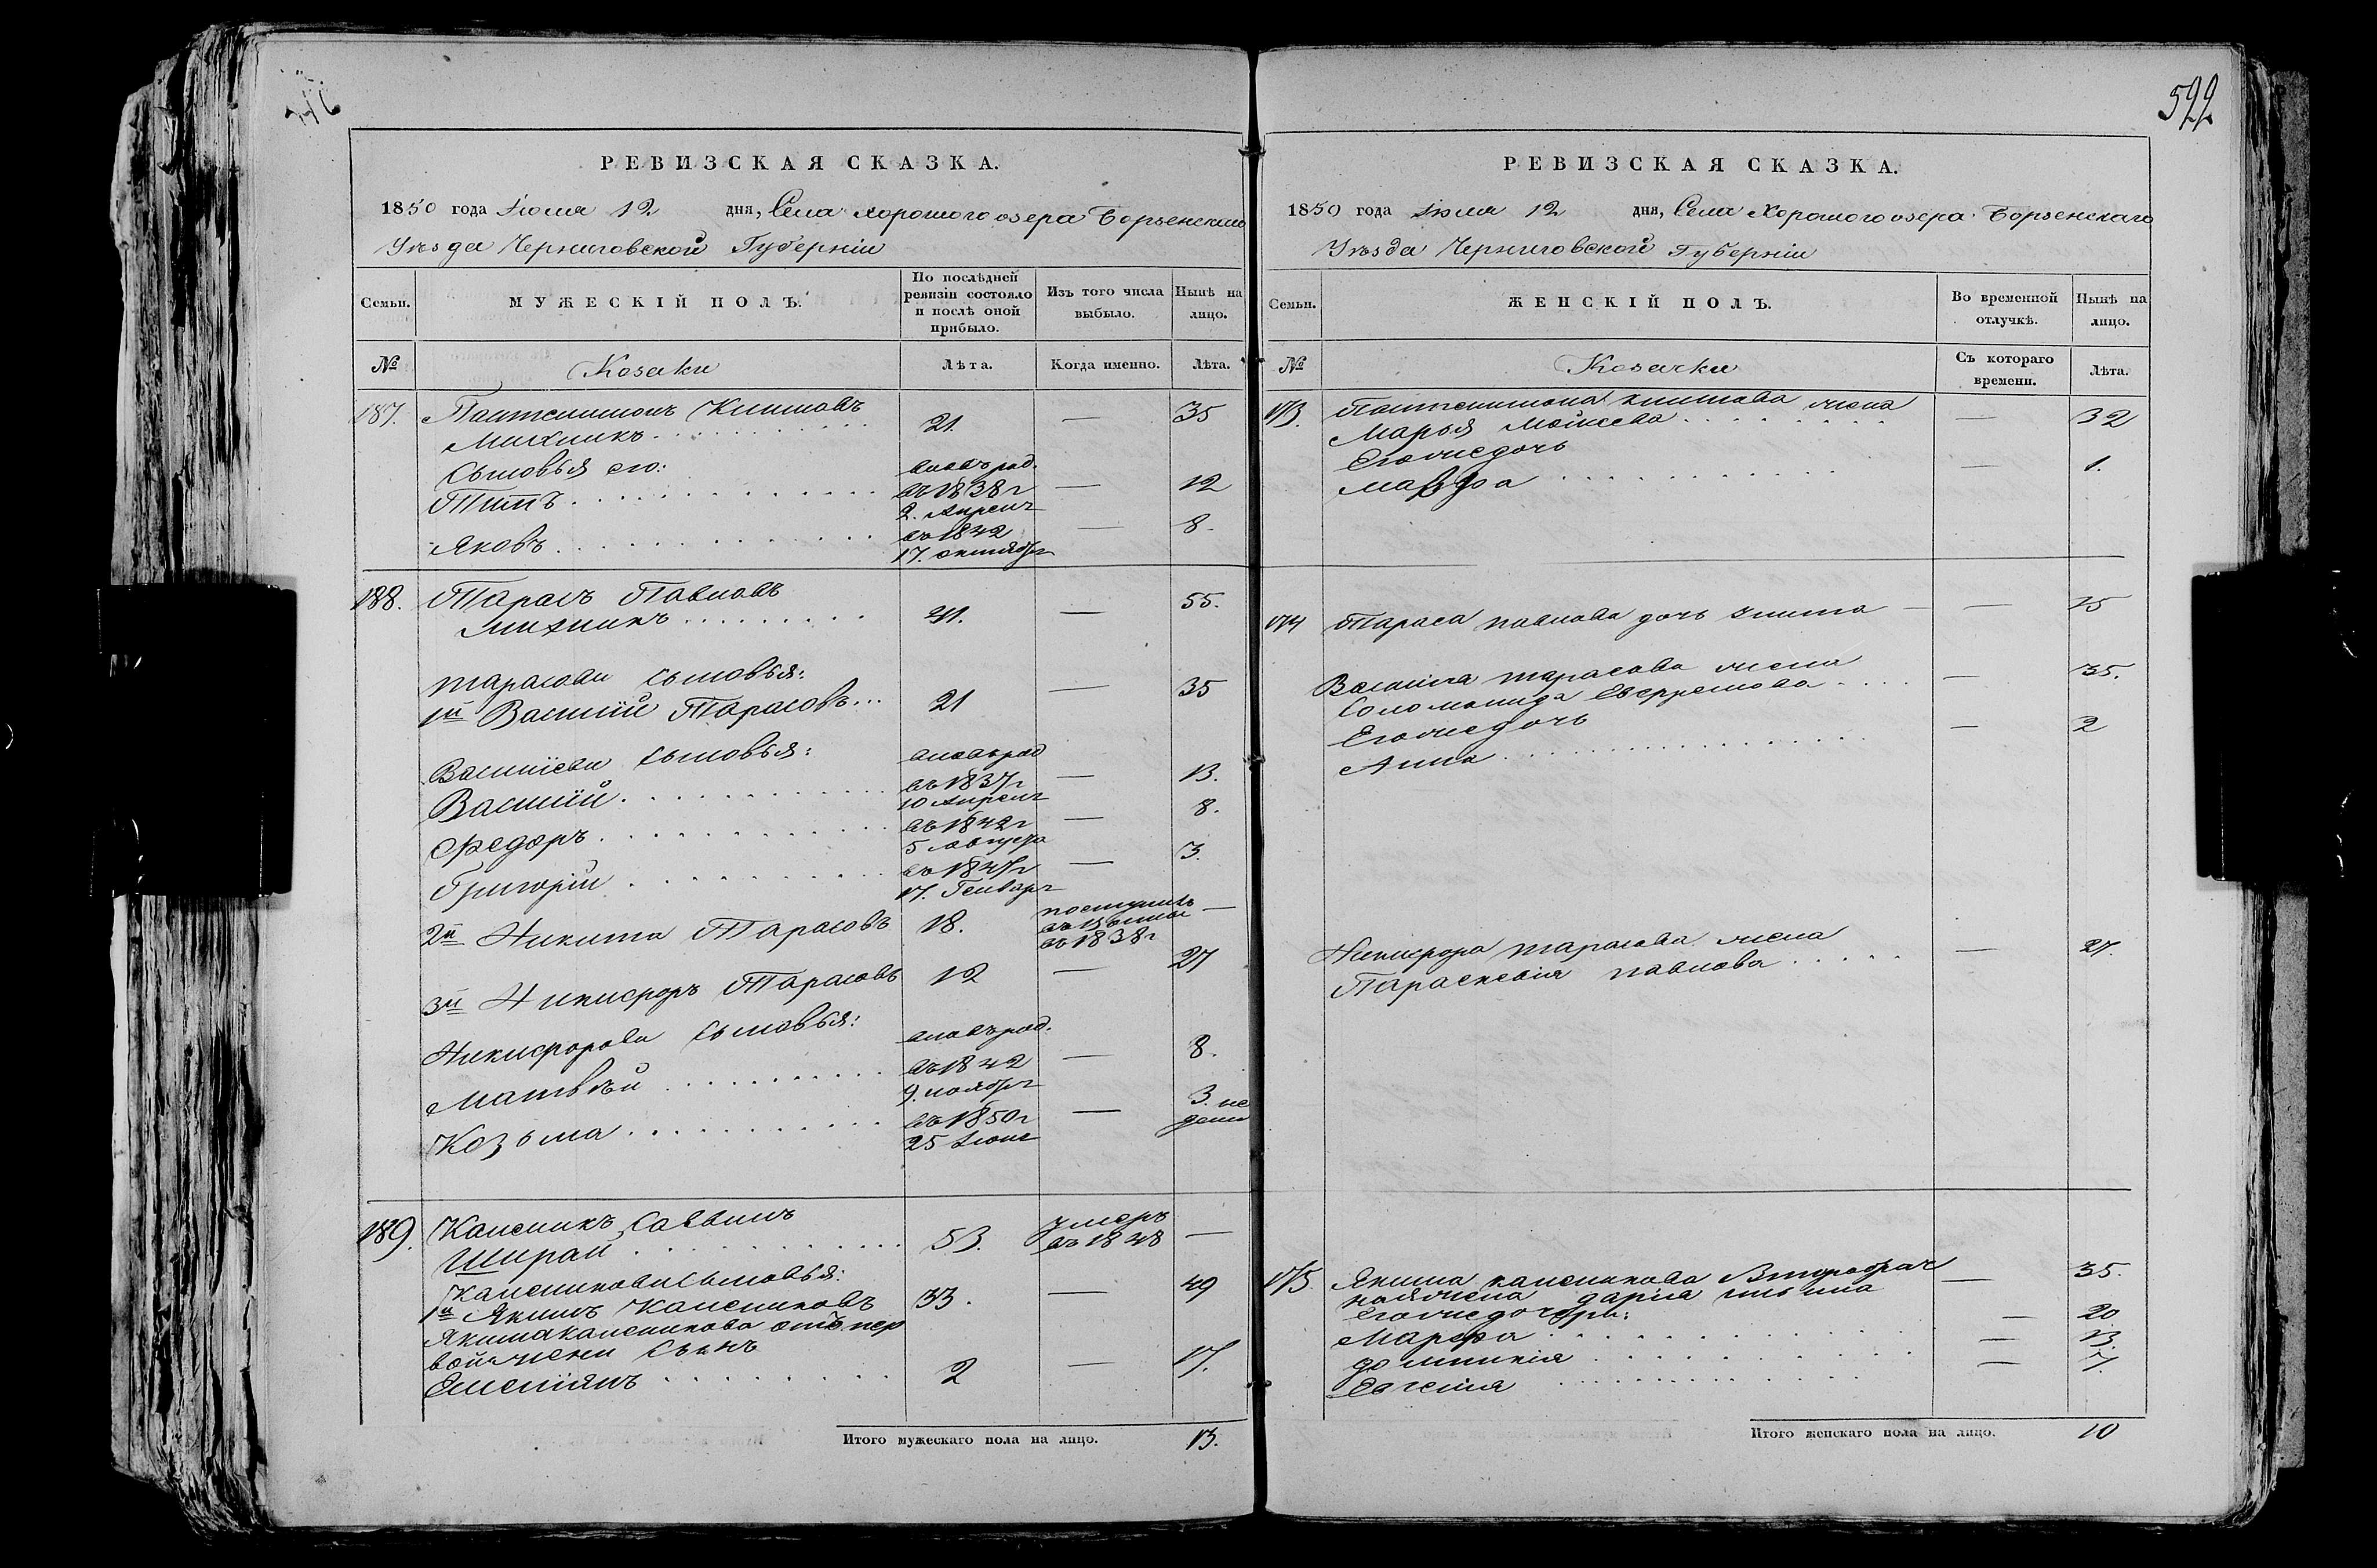 522
РЕВИЗСКАЯ СКАЗКА.
1850 года Іюля 12 дня, Села Хорошого озера Борзенскаго
Уѣзда Черниговской Губерніи
Семьи. МУЖЕСКІЙ ПОЛЪ. По послѣдней ревизіи состояло и послѣ оной прибыло. Изъ того числа выбыло. Нынѣ на лицо.
№ Козаки Лѣта. Когда именно. Лѣта.
187. Пантелимонъ Климовъ
Михникъ 21. — 35
Сыновья его: вновь род.
Титъ въ 1838 г — 12
2. Апреля
Яковъ въ 1842 — 8.
17. октября
188. Тарасъ Павловъ
Михникъ 41. — 55.
Тарасовы сыновья:
1й Василій Тарасовъ 21 — 35
Василіевы сыновья: вновь род
Василій въ 1837 г — 13.
10 Апреля
Федоръ въ 1842 г — 8.
5 Августа
Григорій въ 1847 г — 3.
17. Генваря
2й Никита Тарасовъ 18. поступилъ —
въ 1838 г
3й Никифоръ Тарасовъ 12 — 27
Никифоровы сыновья: вновь род.
Матвѣй въ 1842 — 8.
9. ноября
Козьма въ 1850 г — 3. не
25 Іюня дели
189. Каленикъ Саввинъ
Ширай 53. умеръ въ 1848 —
Калениковы сыновья:
1й Якимъ Калениковъ 33. — 49
Якима Каленикова отъ пер
вой жены сынъ
Емеліянъ 2 — 17.
Итого мужескаго пола на лицо. 13.
РЕВИЗСКАЯ СКАЗКА.
1850 года Іюля 12 дня, Села Хорошого озера Борзенскаго
Уѣзда Черниговской Губерніи
Семьи. ЖЕНСКІЙ ПОЛЪ. Во временной отлучкѣ. Нынѣ на лицо.
№ Козачки Съ котораго времени. Лѣта.
173. Пантелимона Климова жена
Марья Мойсеева — 32
Его же дочь
Мавра — 1.
174 Тараса Павлова дочь Улита — 15
Василія Тарасова жена
Соломонида Ефремова — 35.
Его же дочь
Анна — 2
Никифора Тарасова жена
Параскевія Павлова — 27.
175 Якима Каленикова второбрач
ная жена Дарія Ильина — 35.
Его же дочери:
Марфа — 20
Домникія — 13.
Евгенія — 7.
Итого женскаго пола на лицо. 10